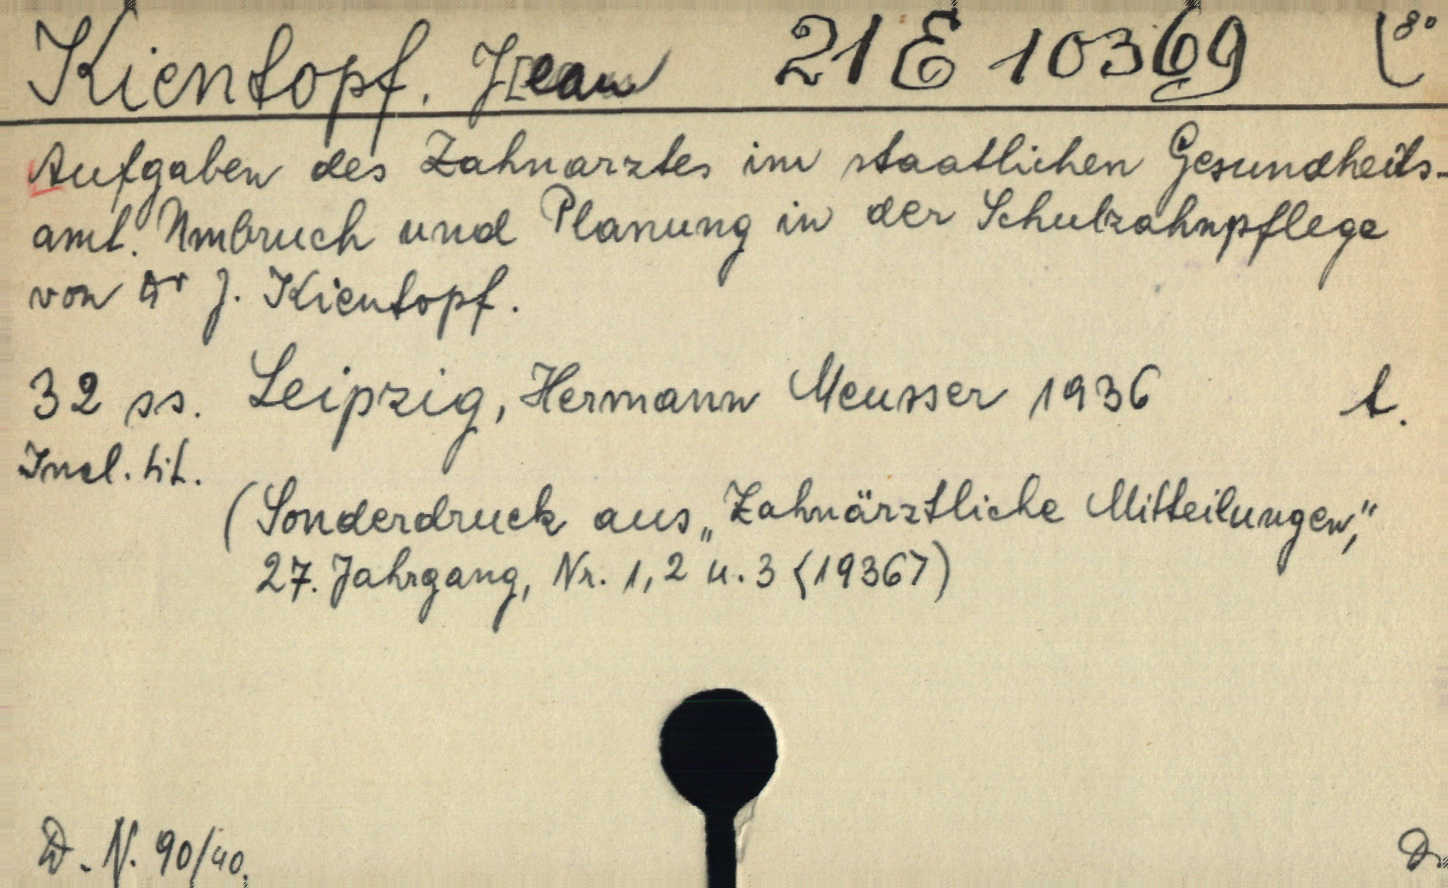 Kientopf. J[ean 21 E 10369 8°
Aufgaben des Zahnarztes im staatlichen Gesundheits-
amt. Umbruch und Planung in der Schulzahnpflege
von Dr J. Kientopf.
32 ss. Leipzig, Hermann Meusser 1936 t.
Incl. tit.
(Sonderdruck aus „Zahnärztliche Mitteilungen,"
27. Jahrgang, Nr. 1, 2 u. 3 <1936>)
D. N. 90/40.